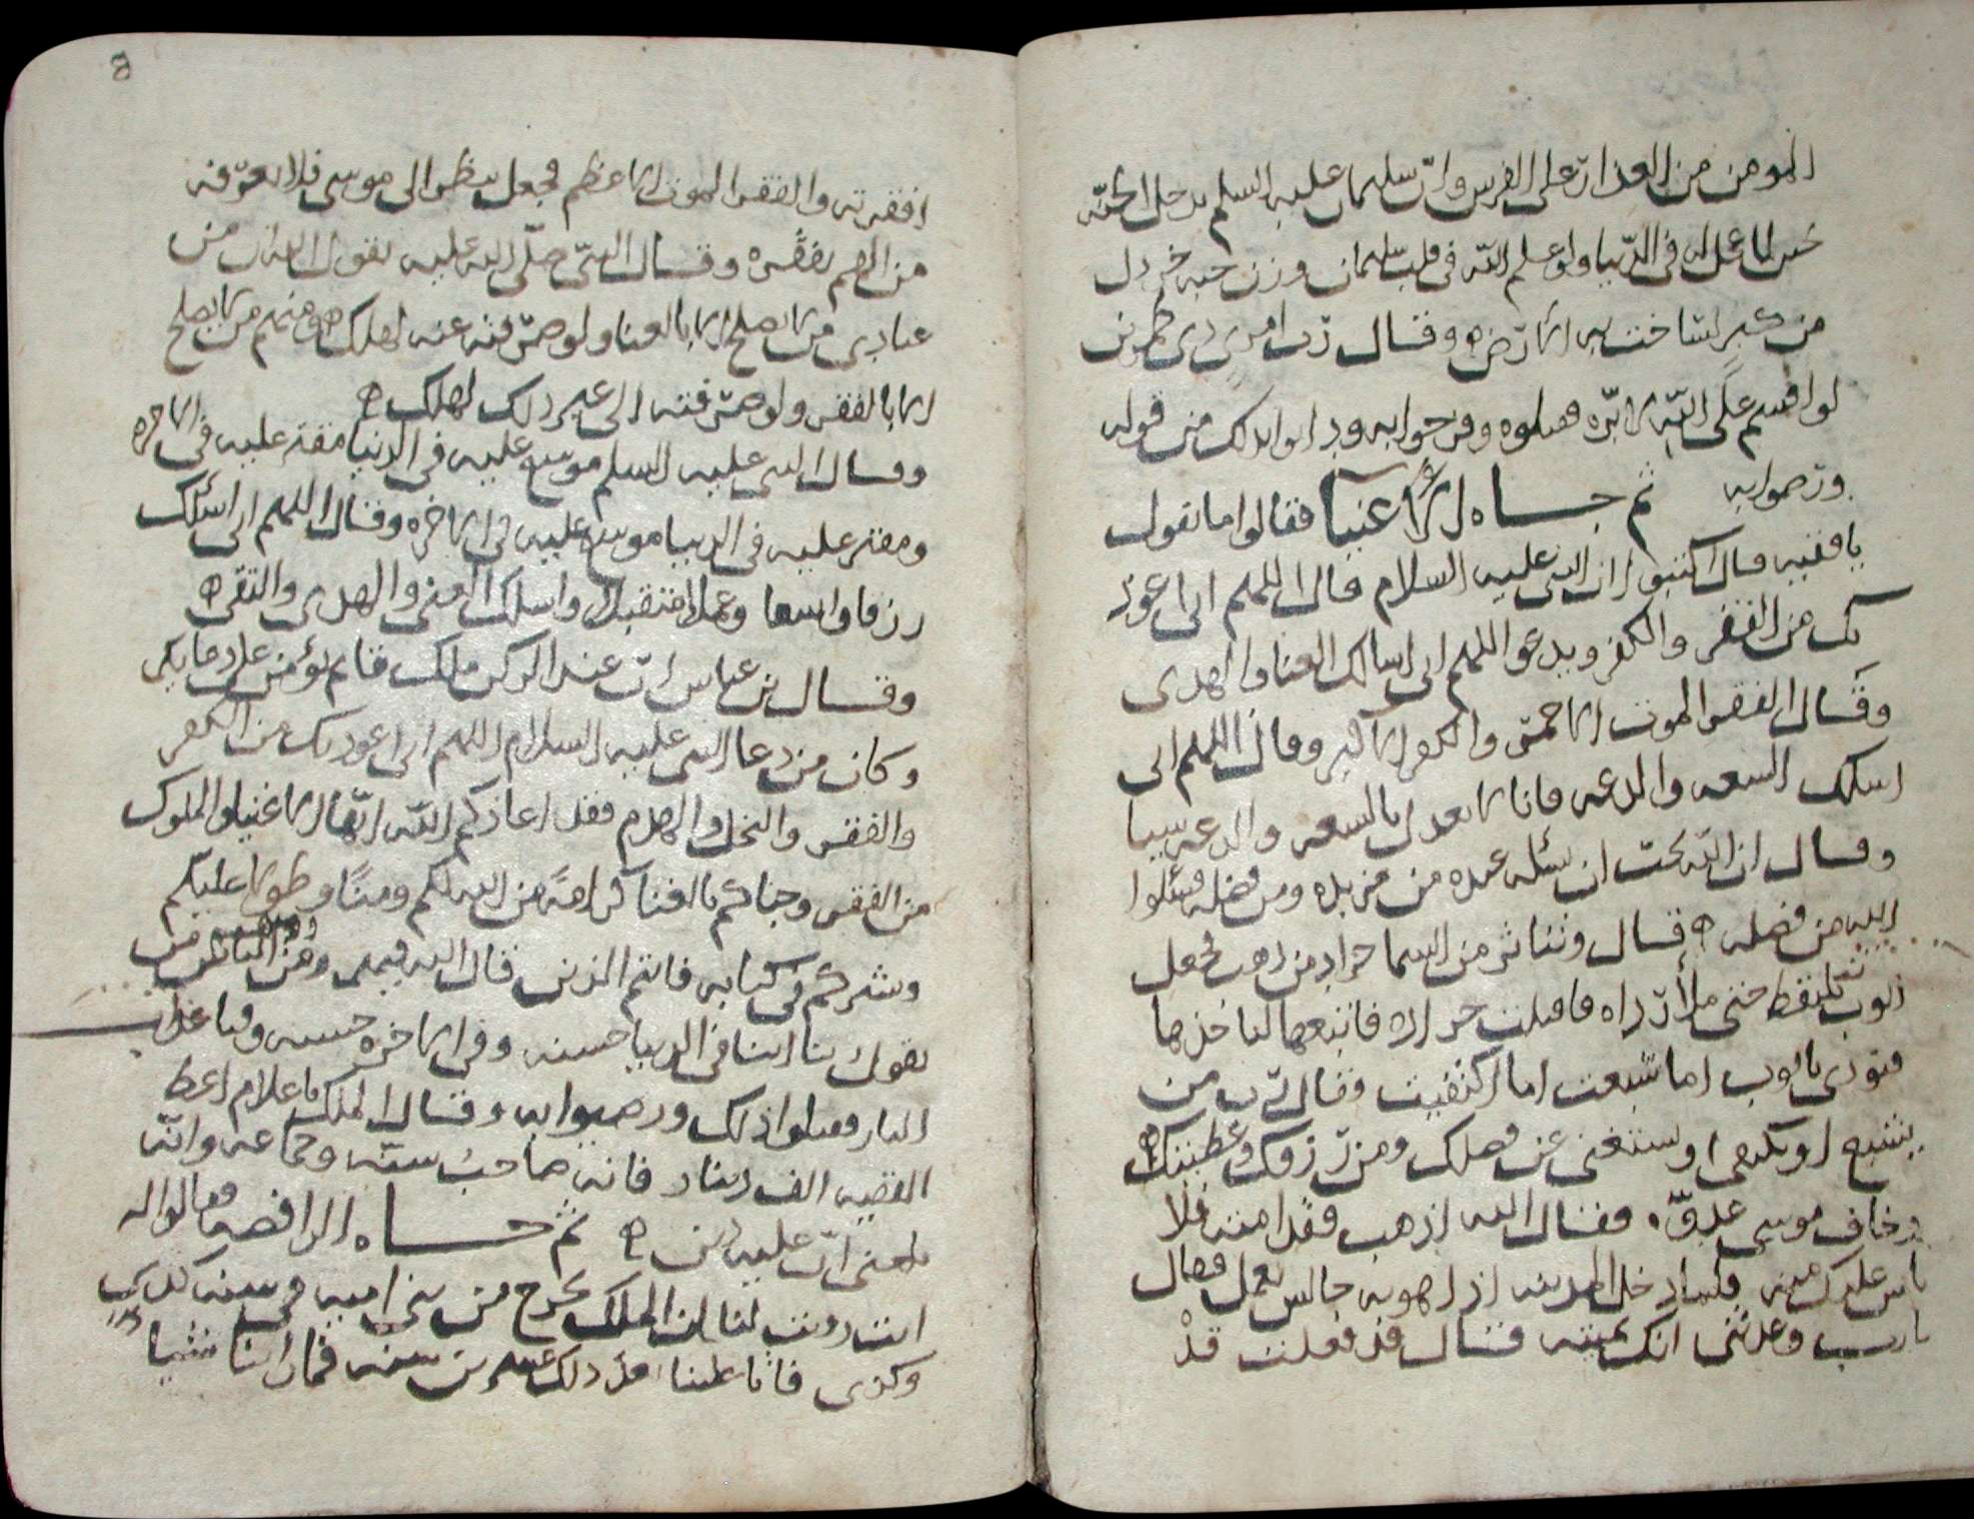 المومن من العذار على الفرس وان سليمان عليه السلم يدخل الجنه
لما عمل له فى الدنيا ولو علم الله فى قلب سليمان وزن حبه خردل
من كبر لساخت به الارض ه وقال رب امرئ ذى طمرين
لو اقسم على الله لابره فقبلوه وفرحوا به ودانوا بذلك من قوله
ورضوا به ثم جاه الاغنيا فقالوا ما تقول
يا فقيه قال اكتبوا ان النبى عليه السلام قال اللهم انى اعوذ
بك من الفقر والكفر ويدعوا اللهم انى اسالك الغنا والهدى
وقال الفقر الموت الاحمر والكفر الاكبر وقال اللهم انى
اسلك السعه والدعه فانا لا نعدل بالسعه والدعه شيا
وقال ان الله يحب ان يسئله عبده من مزيده ومن فضله فسئلوا
الله من فضله ه قال وتناثر من السما جراد من ذهب فجعل
ايوب يلتقط حتى ملأ رداه فاقبلت جراده فاتبعها لياخذها
فنودى يا ايوب اما شبعت اما اكتفيت فقال رب من
يشبع او يكتفى او يستغنى عن فضلك ومن رزقك وعطيتك ه
وخاف موسى عدوه فقال الله اذهب فقد امته فلا
باس عليك منه فلما دخل المدينه اذا هو به جالس يعمل فقال
يا رب وعدتنى انك تميته فقال قد فعلت قد
افقرته والفقر الموت الاعظم فجعل ينظر الى موسى فلا يعرفه
من الهم بفقره وقال النبى صلى الله عليه يقول الله ان من
عبادى من لا يصلح الا بالغنا ولو صرفته عنه لهلك ه ومنهم من لا يصلح
الا بالفقر ولو صرفته الى غير ذلك لهلك ه
وقال النبى عليه السلم موسع عليه فى الدنيا مقتر عليه فى الاخره
ومقتر عليه فى الدنيا موسع عليه فى الاخره وقال اللهم انى اسئلك
رزقا واسعا وعملا متقبلا واسلك الغنى والهدى والتقى ه
وقال بن عباس ان عند الركن ملك قائم يؤمن على دعايكم
وكان من دعا النبى عليه السلام اللهم انى اعوذ بك من الكفر
والفقر والبخل والهرم فقد اعاذكم الله ايها الاغنيا والملوك
من الفقر وحباكم بالغنا كرامة من الله لكم ومنا وطولا عليكم
وشركم فى كتابه فانتم الذين قال الله فيهم ومنهم من
يقول ربنا اتنا فى الدنيا حسنه وفى الاخره حسنه وقنا عذاب
النار فقبلوا ذلك ورضوا به وقال الملك يا غلام اعط
الفقيه الف دينار فانه صاحب سنه وجماعه وانه
بلغنى ان عليه دين ه ثم جاه الرافضه فقالوا له
انت رويت لنا ان الملك يخرج من بنى اميه فى سنه كذى
وكذى فاتا علينا مذ ذلك عشرين سنه فما راينا شيا